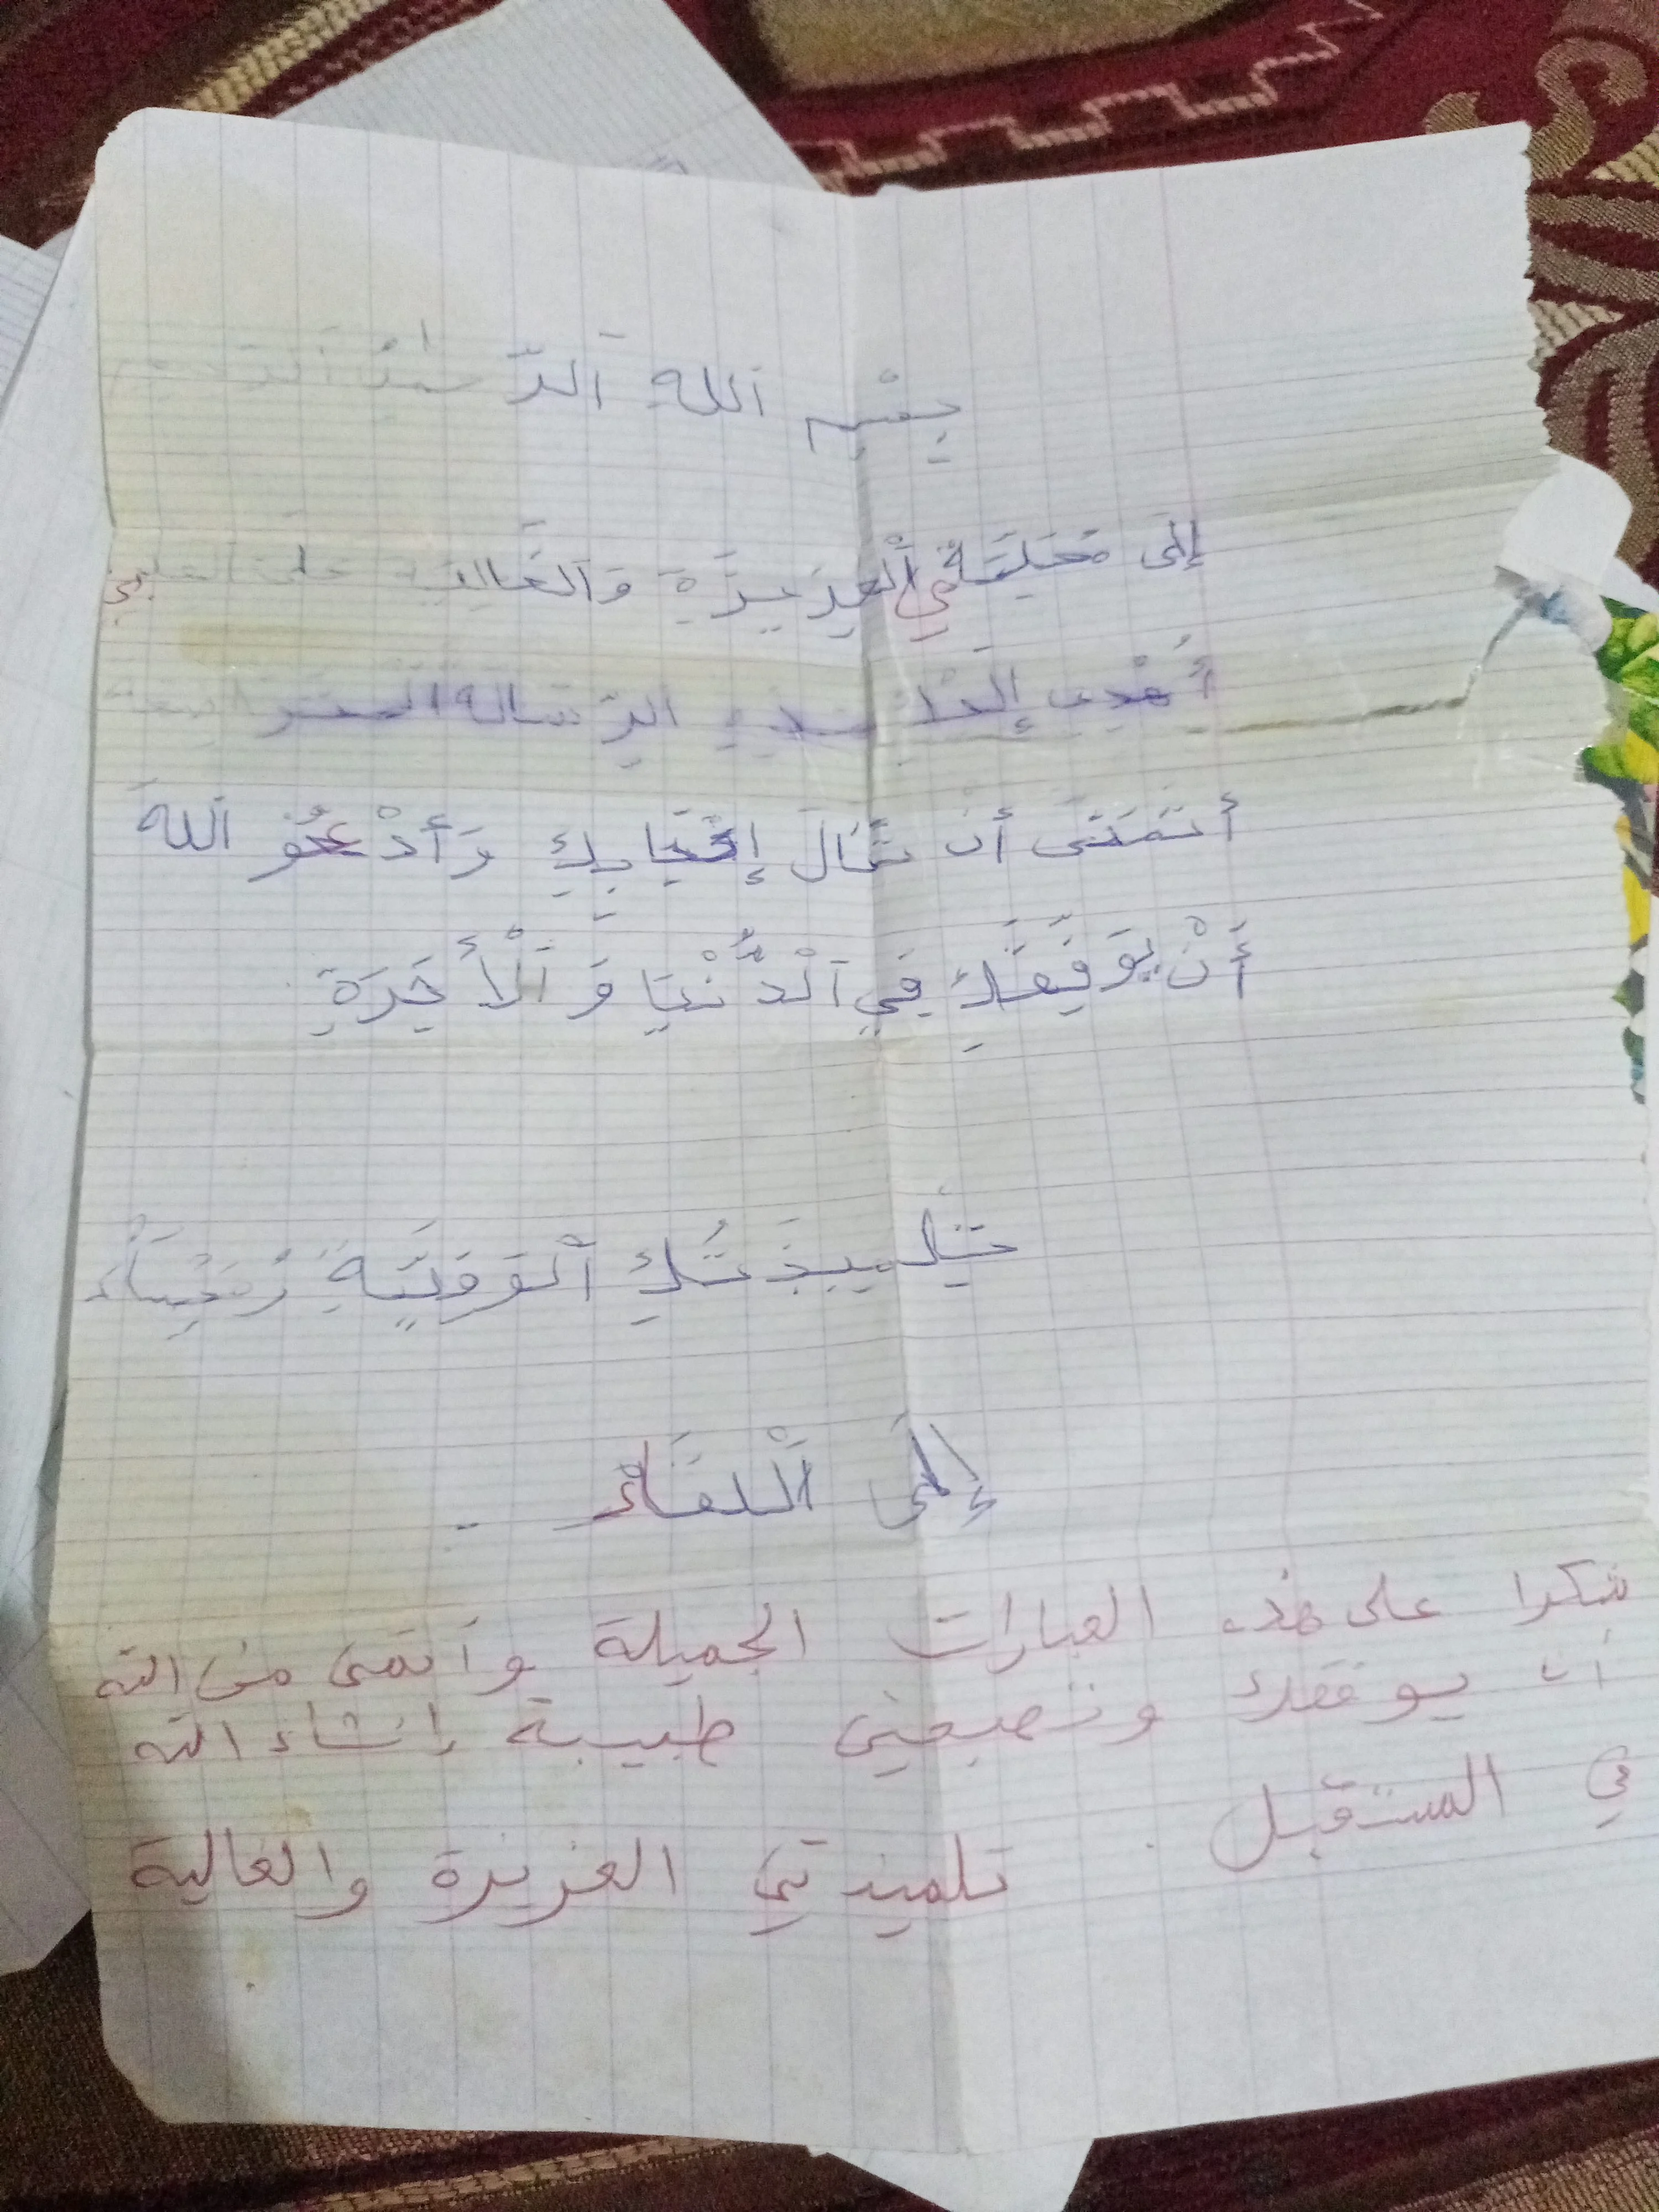 بِسْمِ اَللهِ اَلرَّحْمنِ اَلرَّحِيم
إِلَى مُعَلِمَتِي اَلْعَزِيزَةِ وَالغَالِيَة عَلَى قلبي
أُهْدِي إِلَيْك هذه الرِّسَالة المتواضعة
أَتَمَنَى أَن تَنَالَ إِعْجَابِكِ وَأَدْعُو اَللهَ
أَنْ يُوَفِقَكِ فِي اَلْدُّنْيَا وَ اَلْأَخِرَةِ.
تِلميذَتُكِ اَلْوَفِيَةِ
إِلَى اَلْلقَاءْ ..
شكرا على هذه العبارات الجميلة وأتمنى من الله
أن يوفقك وتصبحي طبيبة إنشاء الله
في المستقبل.
تلميذتي العزيزة والغالية